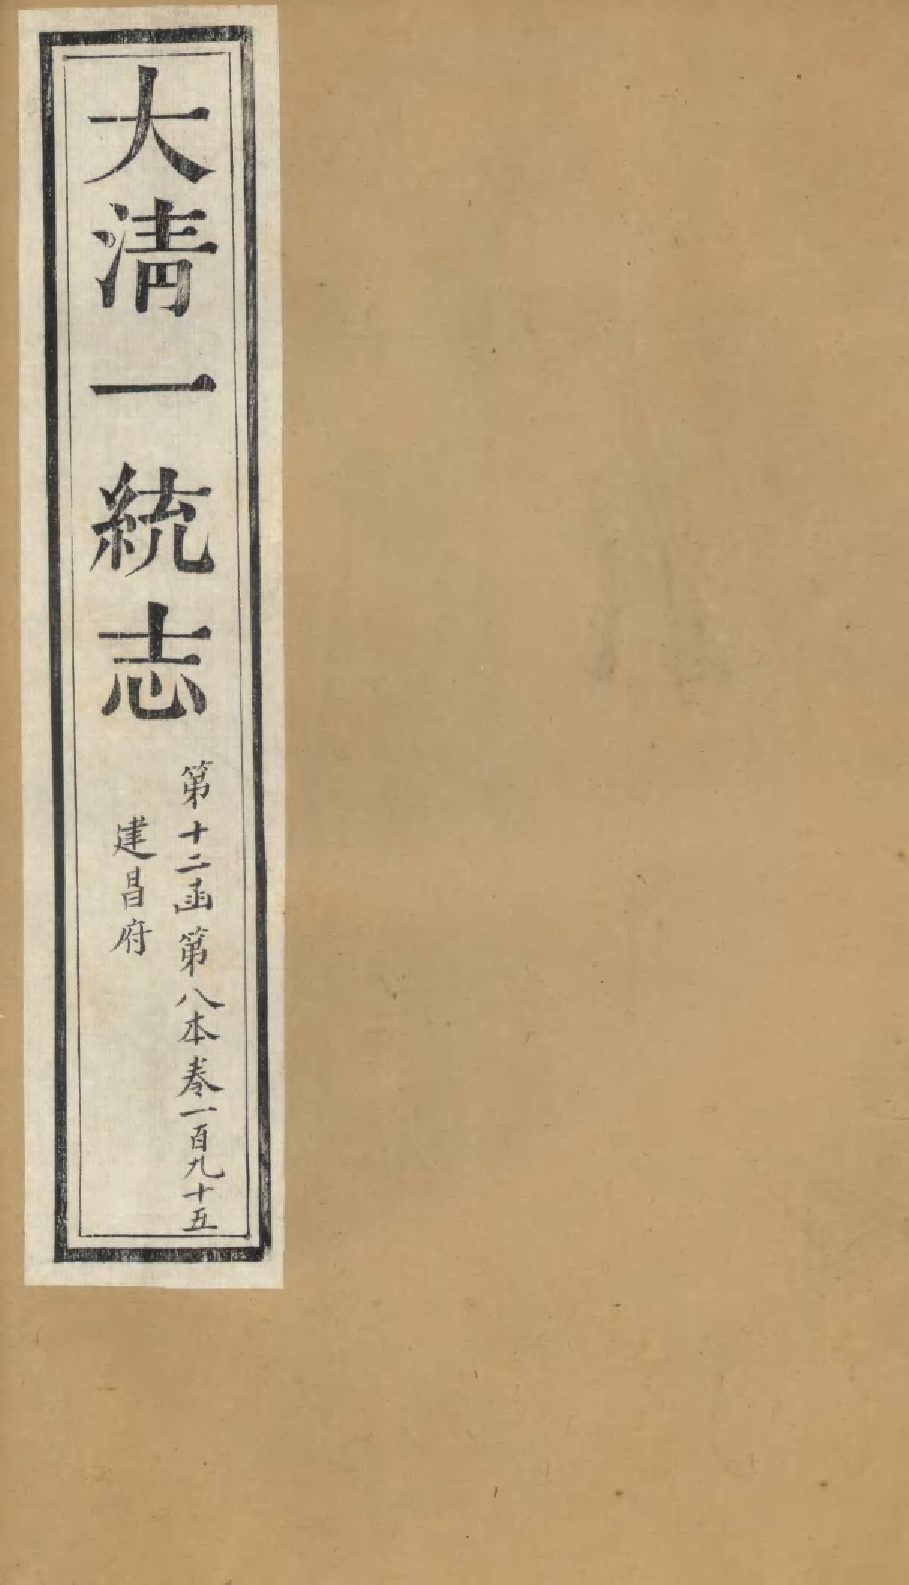 大淸一統志
第十二函第八本卷一百九十五
建昌府